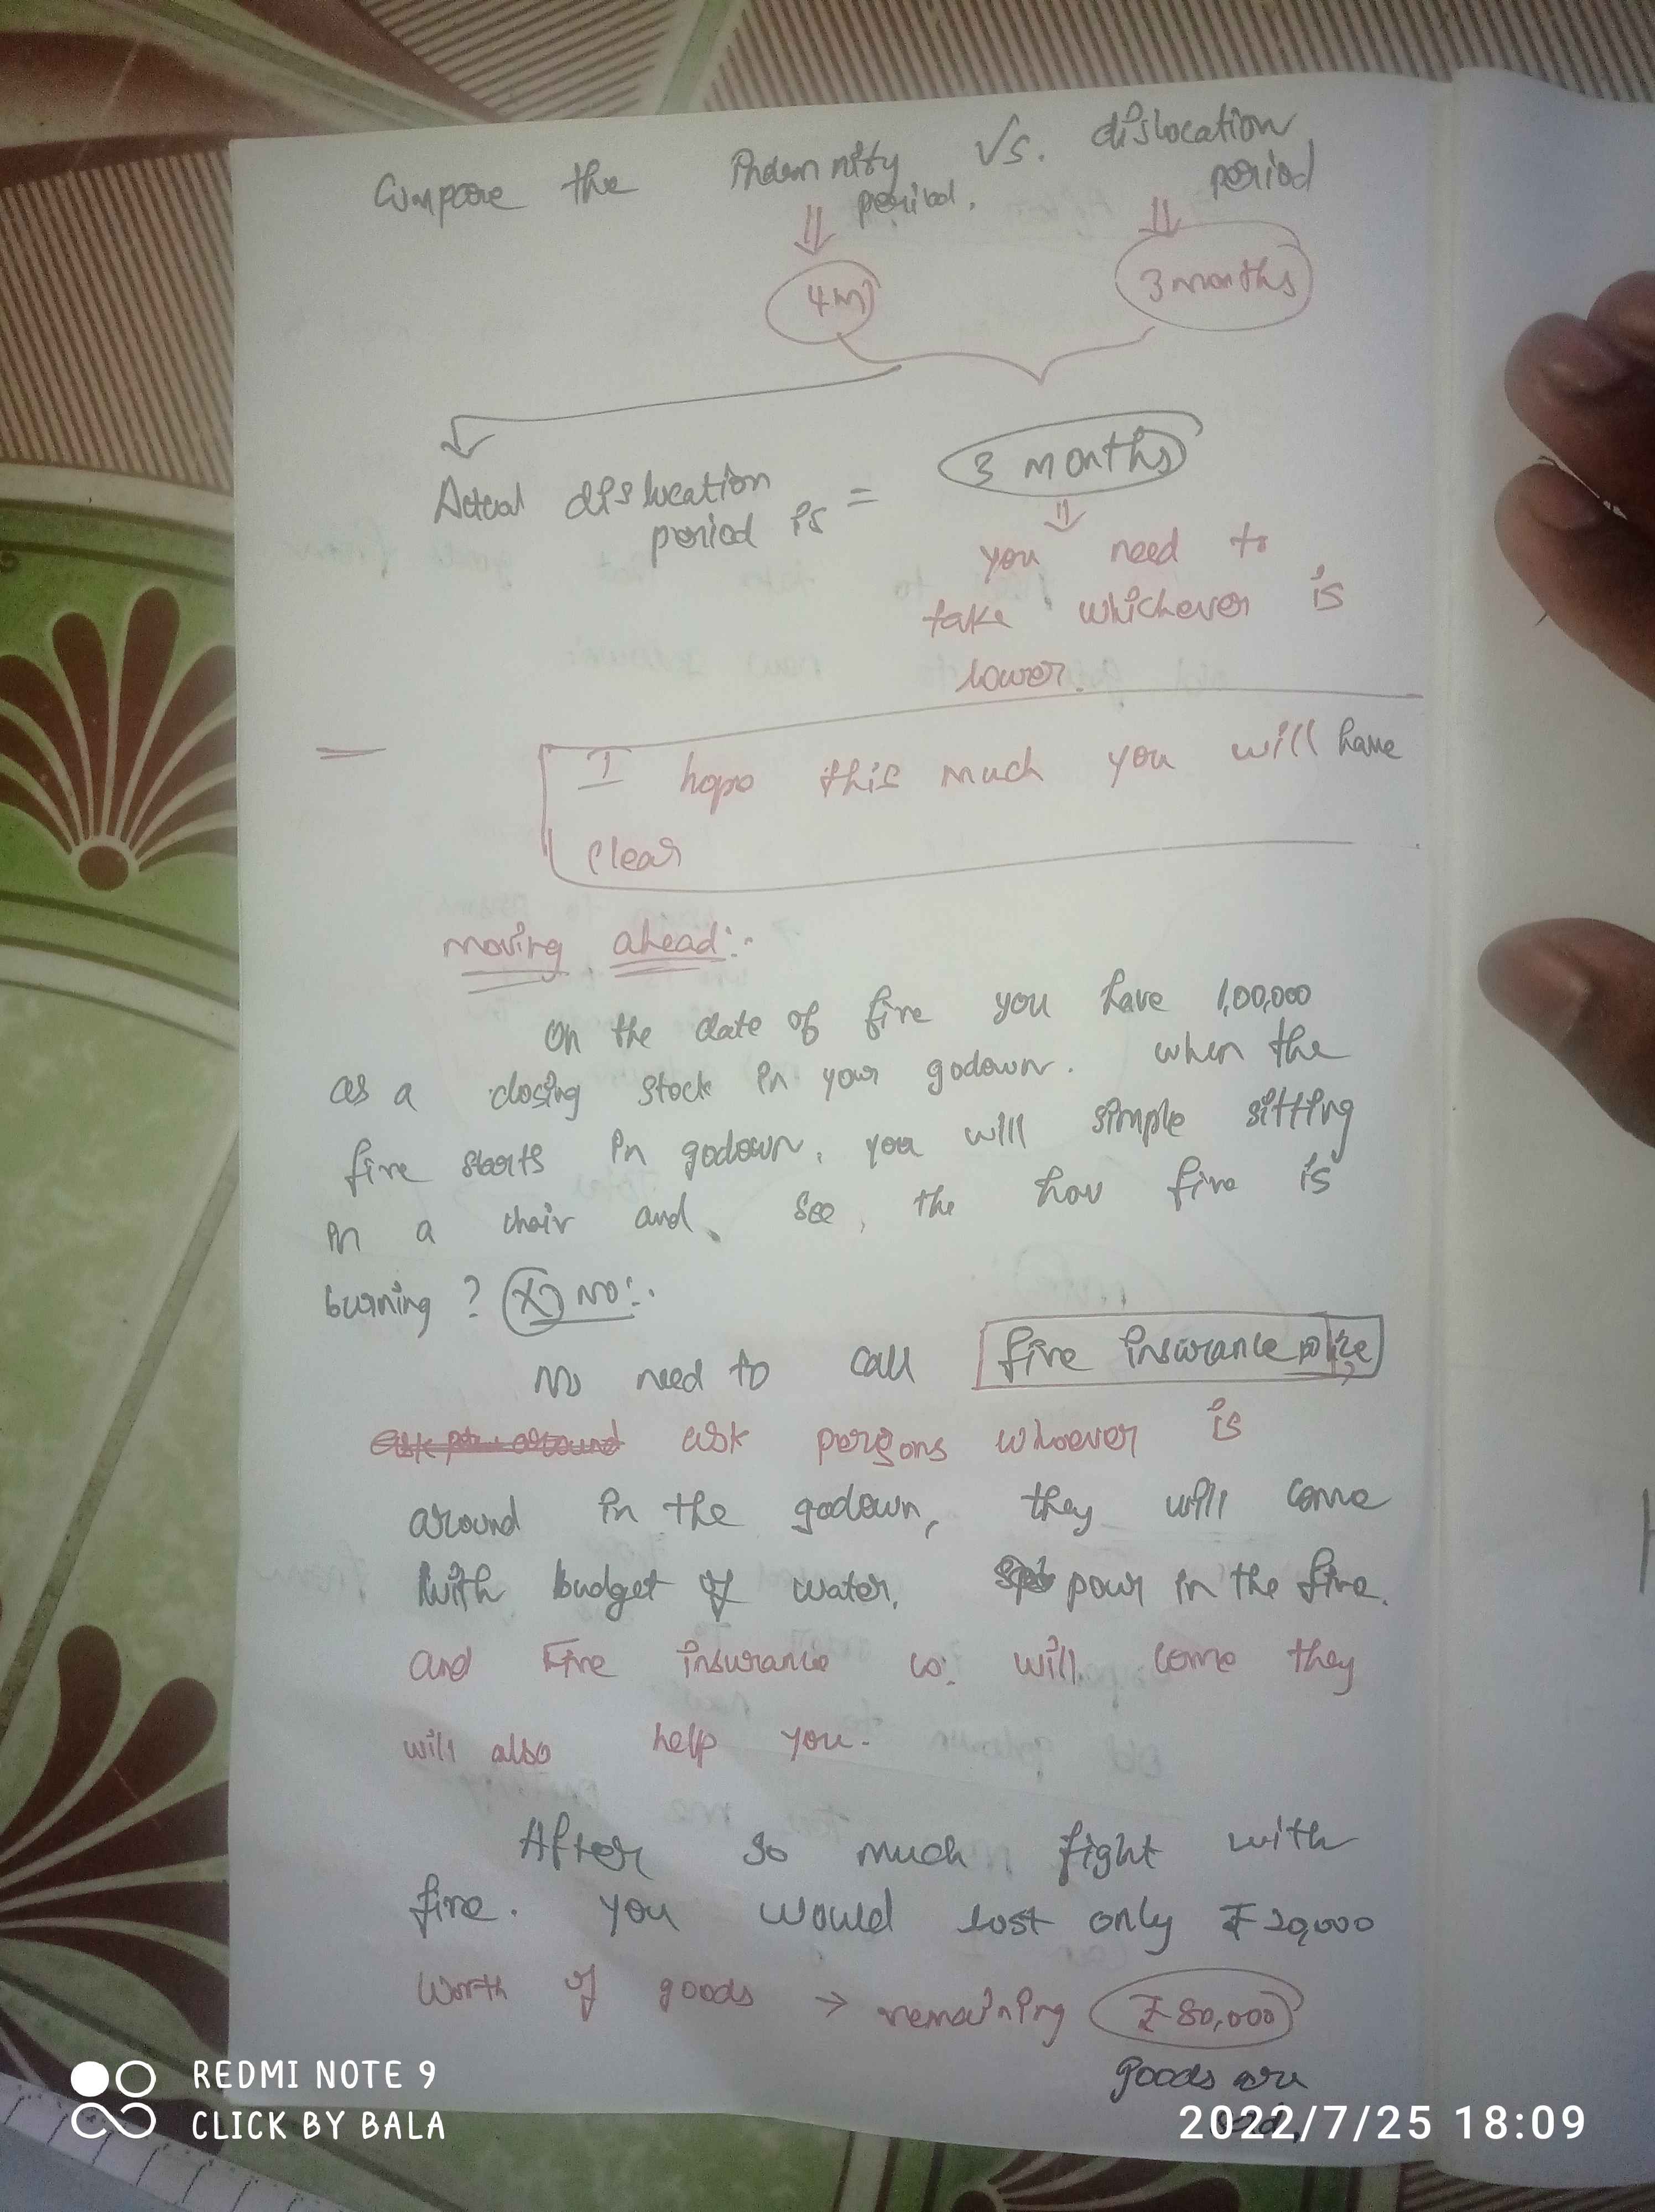 Compare the Indemnity Vs. dislocation
period. period
4m 3 months
Actual dislocation = 3 months
period is
you need to
take whichever is
lower.
I hope this much you will have
clear
moving ahead:-
On the date of fire you have 1,00,000
as a closing stock in your godown. when the
fire starts in godown, you will simple sitting
in a chair and see, the how fire is
burning ? (X) NO:-
No need to call fire insurance
ask persons whoever is
around in the godown, they will come
with budget of water, pour in the fire.
and Fire insurance co. will come they
will also help you.
After so much fight with
fire. you would lost only ₹ 20,000
worth of goods → remaining ₹ 80,000
goods are
REDMI NOTE 9
CLICK BY BALA
2022/7/25 18:09